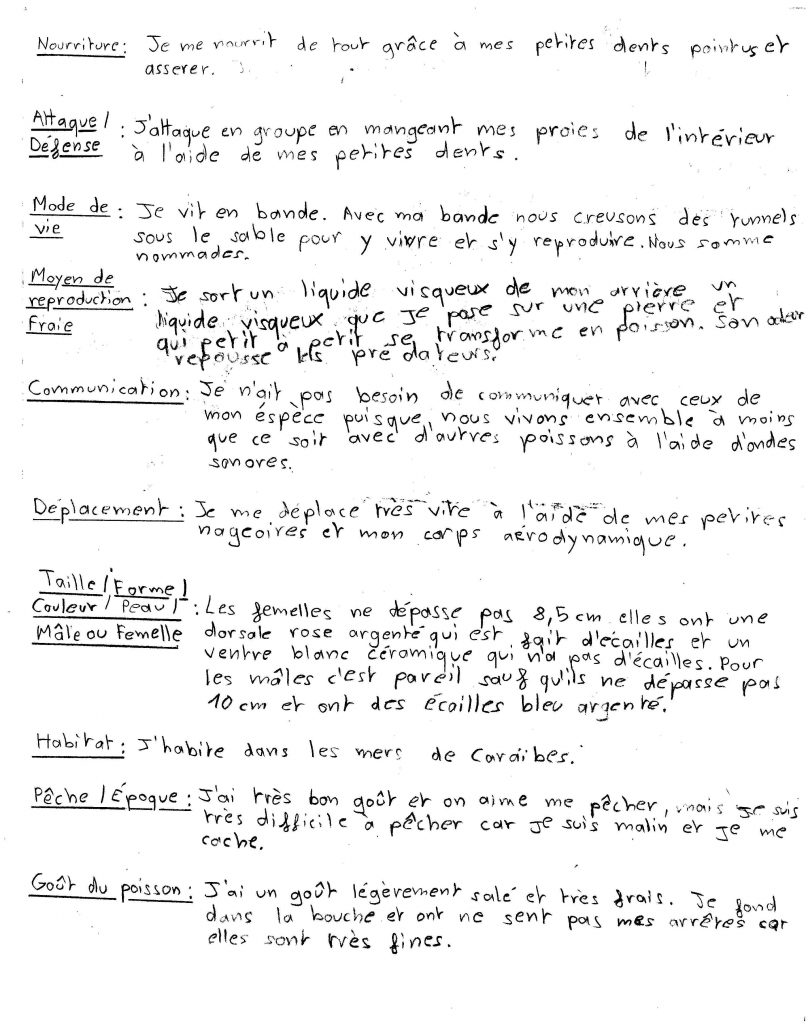 Nourriture : Je me nourrit de tout grâce à mes petites dents pointus et
asserer.
Attaque / Défense : J'attaque en groupe en mangeant mes proies de l'intérieur
à l'aide de mes petites dents.
Mode de vie : Je vit en bande. Avec ma bande nous creusons des tunnels
sous le sable pour y vivre et s'y reproduire. Nous somme
nommades.
Moyen de reproduction Fraie : Je sort un liquide visqueux de mon arrière un
liquide visqueux que je pose sur une pierre et
qui petit à petit se transforme en poisson. Son odeur
repousse les prédateurs.
Communication : Je n'ait pas besoin de communiquer avec ceux de
mon éspèce puisque nous vivons ensemble à moins
que ce soit avec d'autres poissons à l'aide d'ondes
sonores.
Déplacement : Je me déplace très vite à l'aide de mes petites
nageoires et mon corps aérodynamique.
Taille / Forme /
Couleur / Peau / : Les femelles ne dépasse pas 8,5 cm elles ont une
Mâle ou Femelle dorsale rose argenté qui est fait d'écailles et un
ventre blanc céramique qui n'a pas d'écailles. Pour
les mâles c'est pareil sauf qu'ils ne dépasse pas
10 cm et ont des écailles bleu argenté.
Habitat : J'habite dans les mers de Caraïbes.
Pêche / Époque : J'ai très bon goût et on aime me pêcher, mais je suis
très difficile à pêcher car je suis malin et je me
cache.
Goût du poisson : J'ai un goût légèrement salé et très frais. Je fond
dans la bouche et ont ne sent pas mes arrêtes car
elles sont très fines.